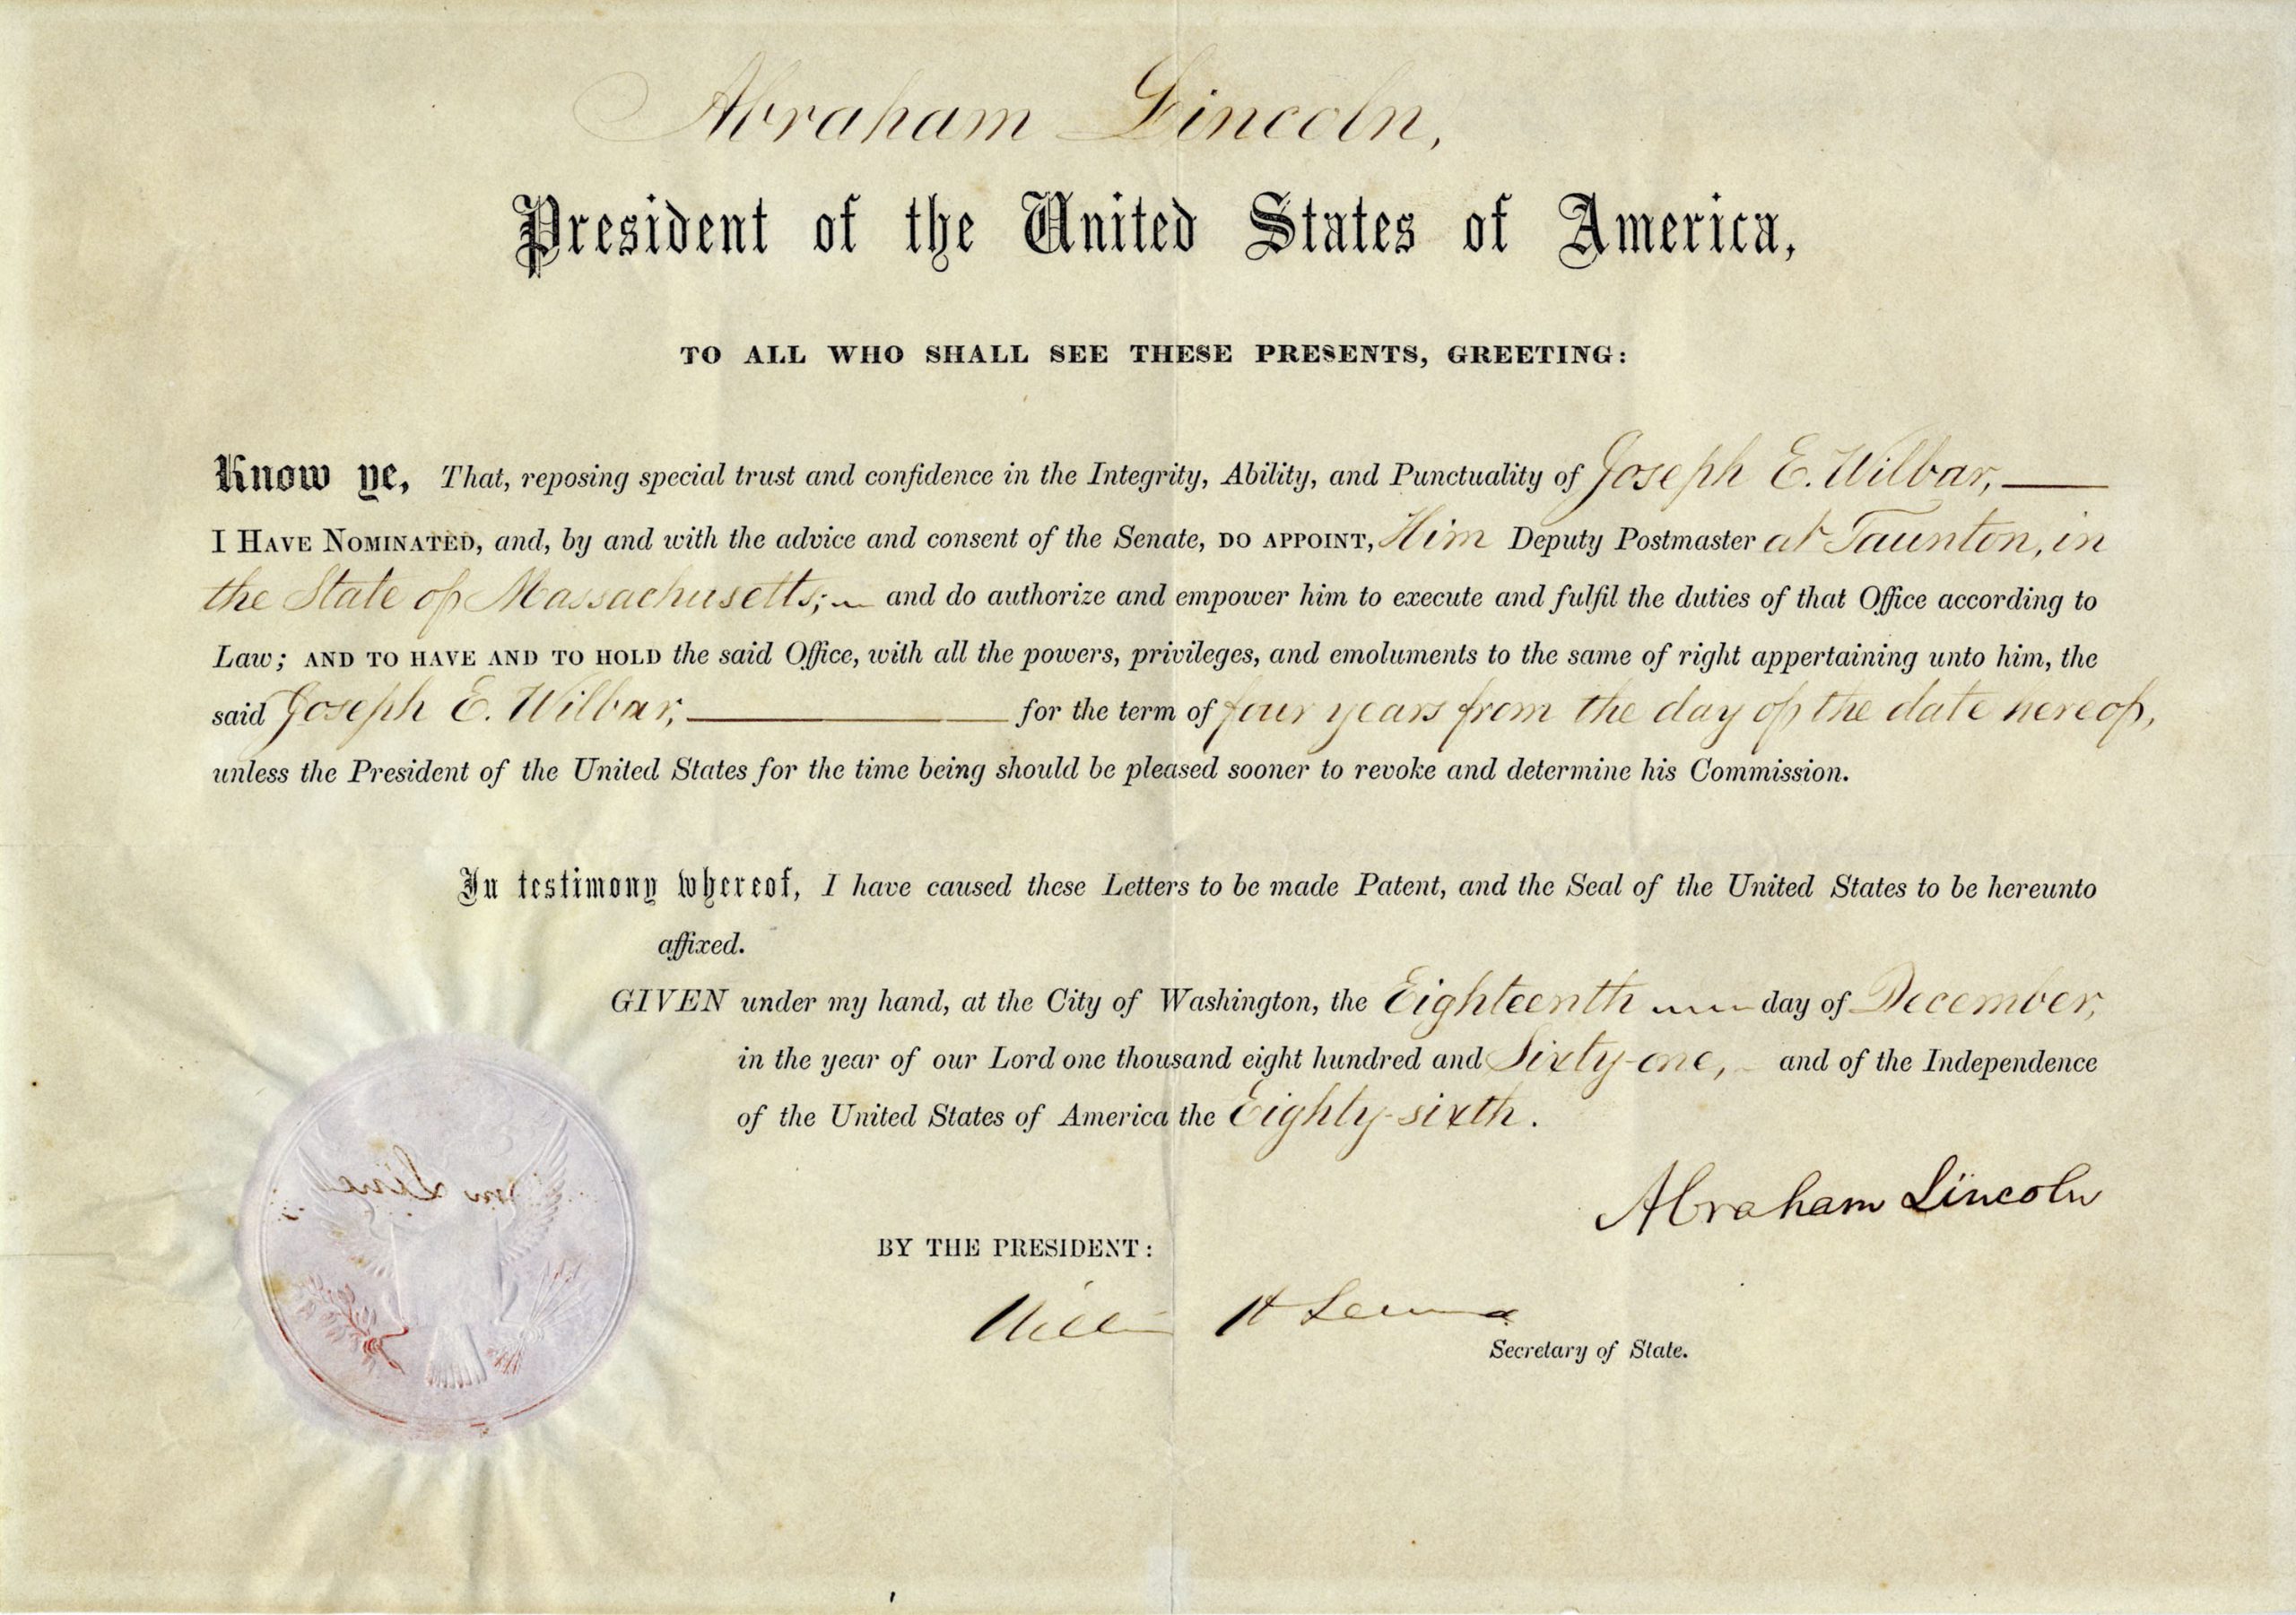 Abraham Lincoln,
President of the United States of America,
TO ALL WHO SHALL SEE THESE PRESENTS, GREETING:
Know ye, That, reposing special trust and confidence in the Integrity, Ability, and Punctuality of Joseph E. Wilbar,
I HAVE NOMINATED, and, by and with the advice and consent of the Senate, DO APPOINT, Him Deputy Postmaster at Taunton, in
the State of Massachusetts; and do authorize and empower him to execute and fulfil the duties of that Office according to
Law; AND TO HAVE AND TO HOLD the said Office, with all the powers, privileges, and emoluments to the same of right appertaining unto him, the
said Joseph E. Wilbar, for the term of four years from the day of the date hereof,
unless the President of the United States for the time being should be pleased sooner to revoke and determine his Commission.
In testimony whereof, I have caused these Letters to be made Patent, and the Seal of the United States to be hereunto
affixed.
GIVEN under my hand, at the City of Washington, the Eighteenth day of December,
in the year of our Lord one thousand eight hundred and Sixty-one, and of the Independence
of the United States of America the Eighty-sixth.
Abraham Lincoln
BY THE PRESIDENT:
William H Seward
Secretary of State.